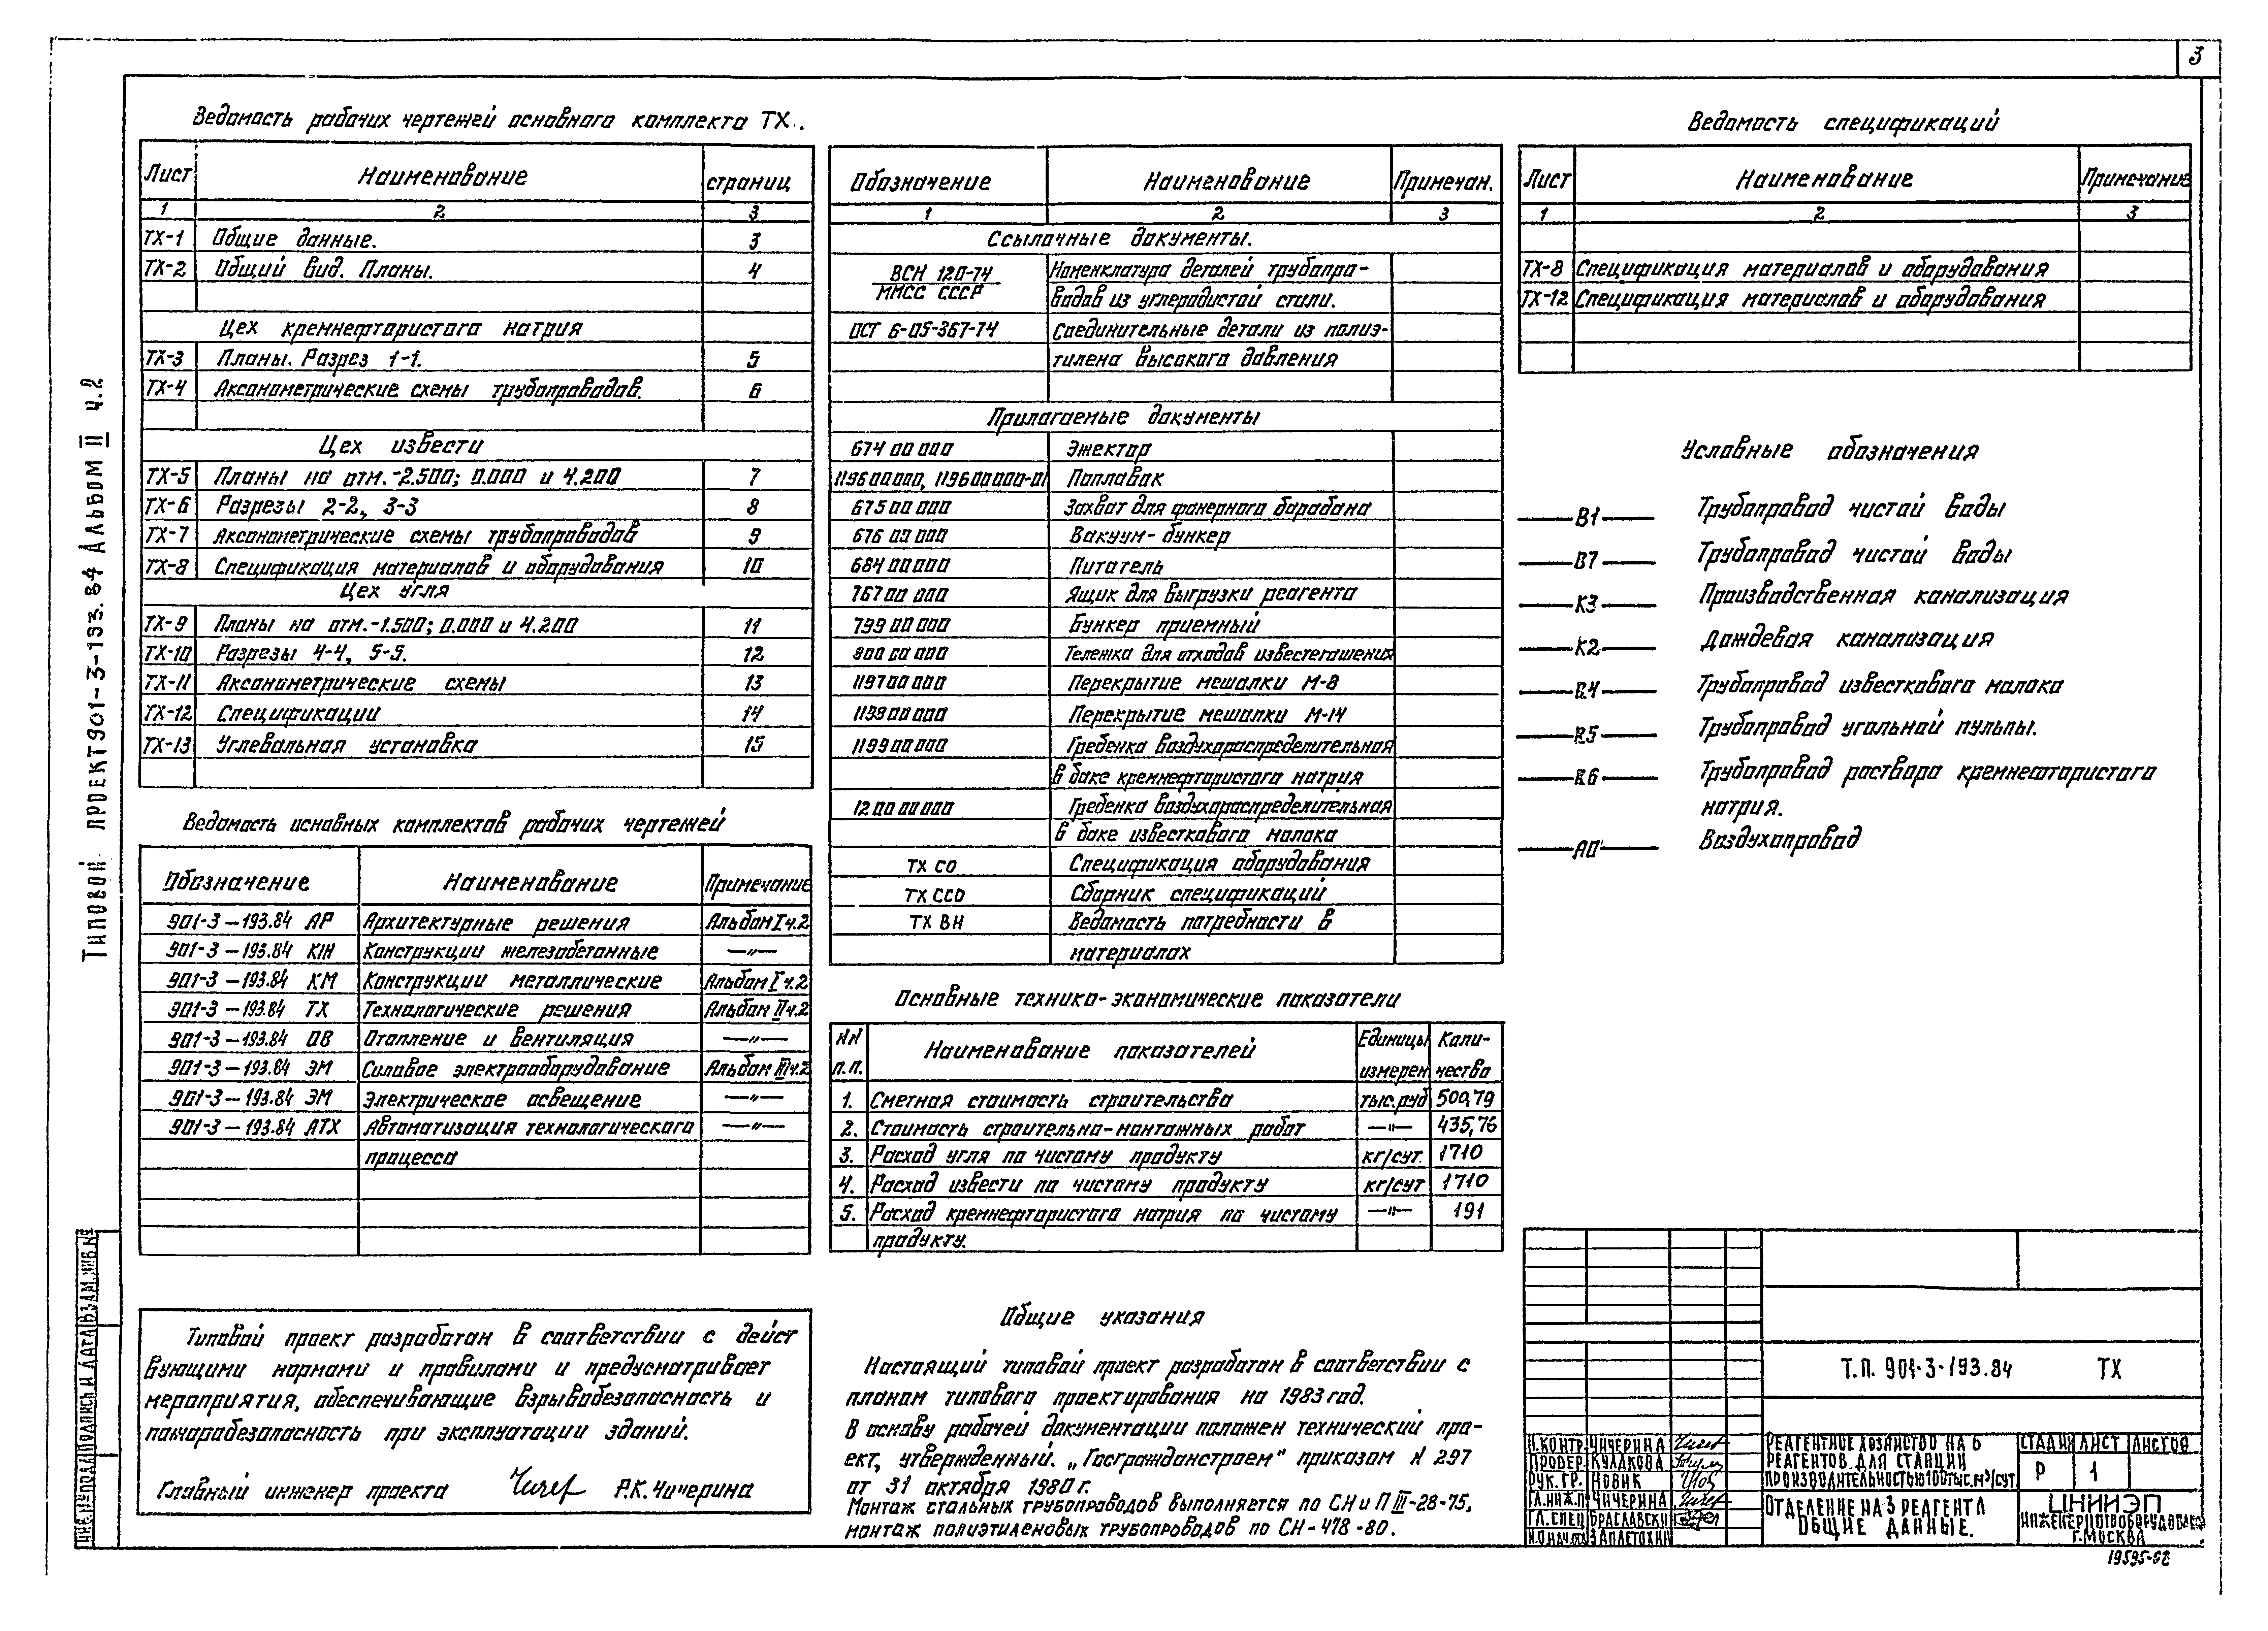 3
Типовой проект 901-3-193.84 Альбом II ч.2
Ведомость рабочих чертежей основного комплекта ТХ.
Лист Наименование страниц
1 2 3
ТХ-1 Общие данные. 3
ТХ-2 Общий вид. Планы. 4
Цех кремнефтористого натрия
ТХ-3 Планы. Разрез 1-1. 5
ТХ-4 Аксонометрические схемы трубопроводов. 6
Цех извести
ТХ-5 Планы на отм.-2.500; 0.000 и 4.200 7
ТХ-6 Разрезы 2-2, 3-3 8
ТХ-7 Аксонометрические схемы трубопроводов 9
ТХ-8 Спецификация материалов и оборудования 10
Цех угля
ТХ-9 Планы на отм.-1.500; 0.000 и 4.200 11
ТХ-10 Разрезы 4-4, 5-5. 12
ТХ-11 Аксонометрические схемы 13
ТХ-12 Спецификации 14
ТХ-13 Углевальная установка 15
Ведомость основных комплектов рабочих чертежей
Обозначение Наименование Примечание
901-3-193.84 АР Архитектурные решения Альбом I ч.2
901-3-193.84 КЖ Конструкции железобетонные —"—
901-3-193.84 КМ Конструкции металлические Альбом I ч.2
901-3-193.84 ТХ Технологические решения Альбом II ч.2
901-3-193.84 ОВ Отопление и вентиляция —"—
901-3-193.84 ЭМ Силовое электрооборудование Альбом III ч.2
901-3-193.84 ЭМ Электрическое освещение —"—
901-3-193.84 АТХ Автоматизация технологического —"—
процесса
Типовой проект разработан в соответствии с дейст
вующими нормами и правилами и предусматривает
мероприятия, обеспечивающие взрывобезопасность и
пожаробезопасность при эксплуатации зданий.
Главный инженер проекта Р.К. Чичерина
Обозначение Наименование Примечан.
1 2 3
Ссылочные документы.
ВСН 120-74 Номенклатура деталей трубопро-
ММСС СССР водов из углеродистой стали.
ОСТ 6-05-367-74 Соединительные детали из полиэ-
тилена высокого давления
Прилагаемые документы
674 00 000 Эжектор
1196 00 000, 1196 00 000-01 Поплавок
675 00 000 Захват для фанерного барабана
676 00 000 Вакуум-бункер
684 00 000 Питатель
767 00 000 Ящик для выгрузки реагента
799 00 000 Бункер приемный
800 00 000 Тележка для отходов известегашения
1197 00 000 Перекрытие мешалки М-8
1199 00 000 Перекрытие мешалки М-14
1199 00 000 Гребенка воздухораспределительная
в баке кремнефтористого натрия
1200 00 000 Гребенка воздухораспределительная
в баке известкового молока
ТХ СО Спецификация оборудования
ТХ ССО Сборник спецификаций
ТХ ВН Ведомость потребности в
материалах
Основные технико-экономические показатели
NN Наименование показателей Единицы Коли-
п.п. измерен чество
1. Сметная стоимость строительства тыс.руб 500,79
2. Стоимость строительно-монтажных работ —"— 435,76
3. Расход угля по чистому продукту кг/сут. 1710
4. Расход извести по чистому продукту кг/сут 1710
5. Расход кремнефтористого натрия по чистому —"— 191
продукту.
Общие указания
Настоящий типовой проект разработан в соответствии с
планом типового проектирования на 1983 год.
В основу рабочей документации положен технический про-
ект, утвержденный „Госгражданстроем" приказом N 297
от 31 октября 1980 г.
Монтаж стальных трубопроводов выполняется по СН и П III-28-75,
монтаж полиэтиленовых трубопроводов по СН-478-80.
Ведомость спецификаций
Лист Наименование Примечание
1 2 3
ТХ-8 Спецификация материалов и оборудования
ТХ-12 Спецификация материалов и оборудования
Условные обозначения
В1 Трубопровод чистой воды
В7 Трубопровод чистой воды
К3 Производственная канализация
К2 Дождевая канализация
R4 Трубопровод известкового молока
R5 Трубопровод угольной пульпы.
R6 Трубопровод раствора кремнефтористого
натрия.
А0 Воздухопровод
Т.П. 901-3-193.84 ТХ
Н.контр. Чичерина
Провер. Кулакова
Рук.гр. Новик
Гл.инж.п Чичерина
Гл.спец Браславски
И.о.нач.отд Заплетохин
Реагентное хозяйство на 6
реагентов для станции
производительностью 100 тыс.м³/сут
Стадия Лист Листов
Р 1
Отделение на 3 реагента
Общие данные.
ЦНИИЭП
инженерного оборудов.
г.Москва
19595-02
Инв.№ подл Подпись и дата Взам.инв.№